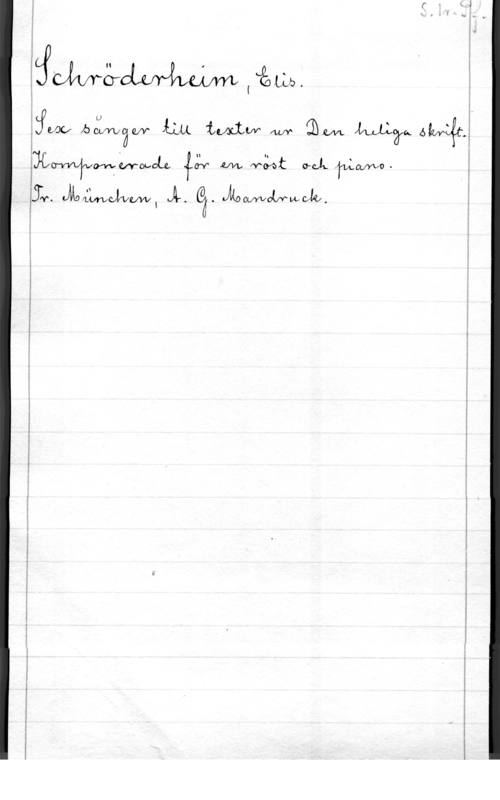 S. 1 v. Pf.
Schröderheim, Elis.
Sex sånger till texter ur Den heliga skrift.
Komponerade för en röst och piano.
Tr. München, A. G. Mandruck.